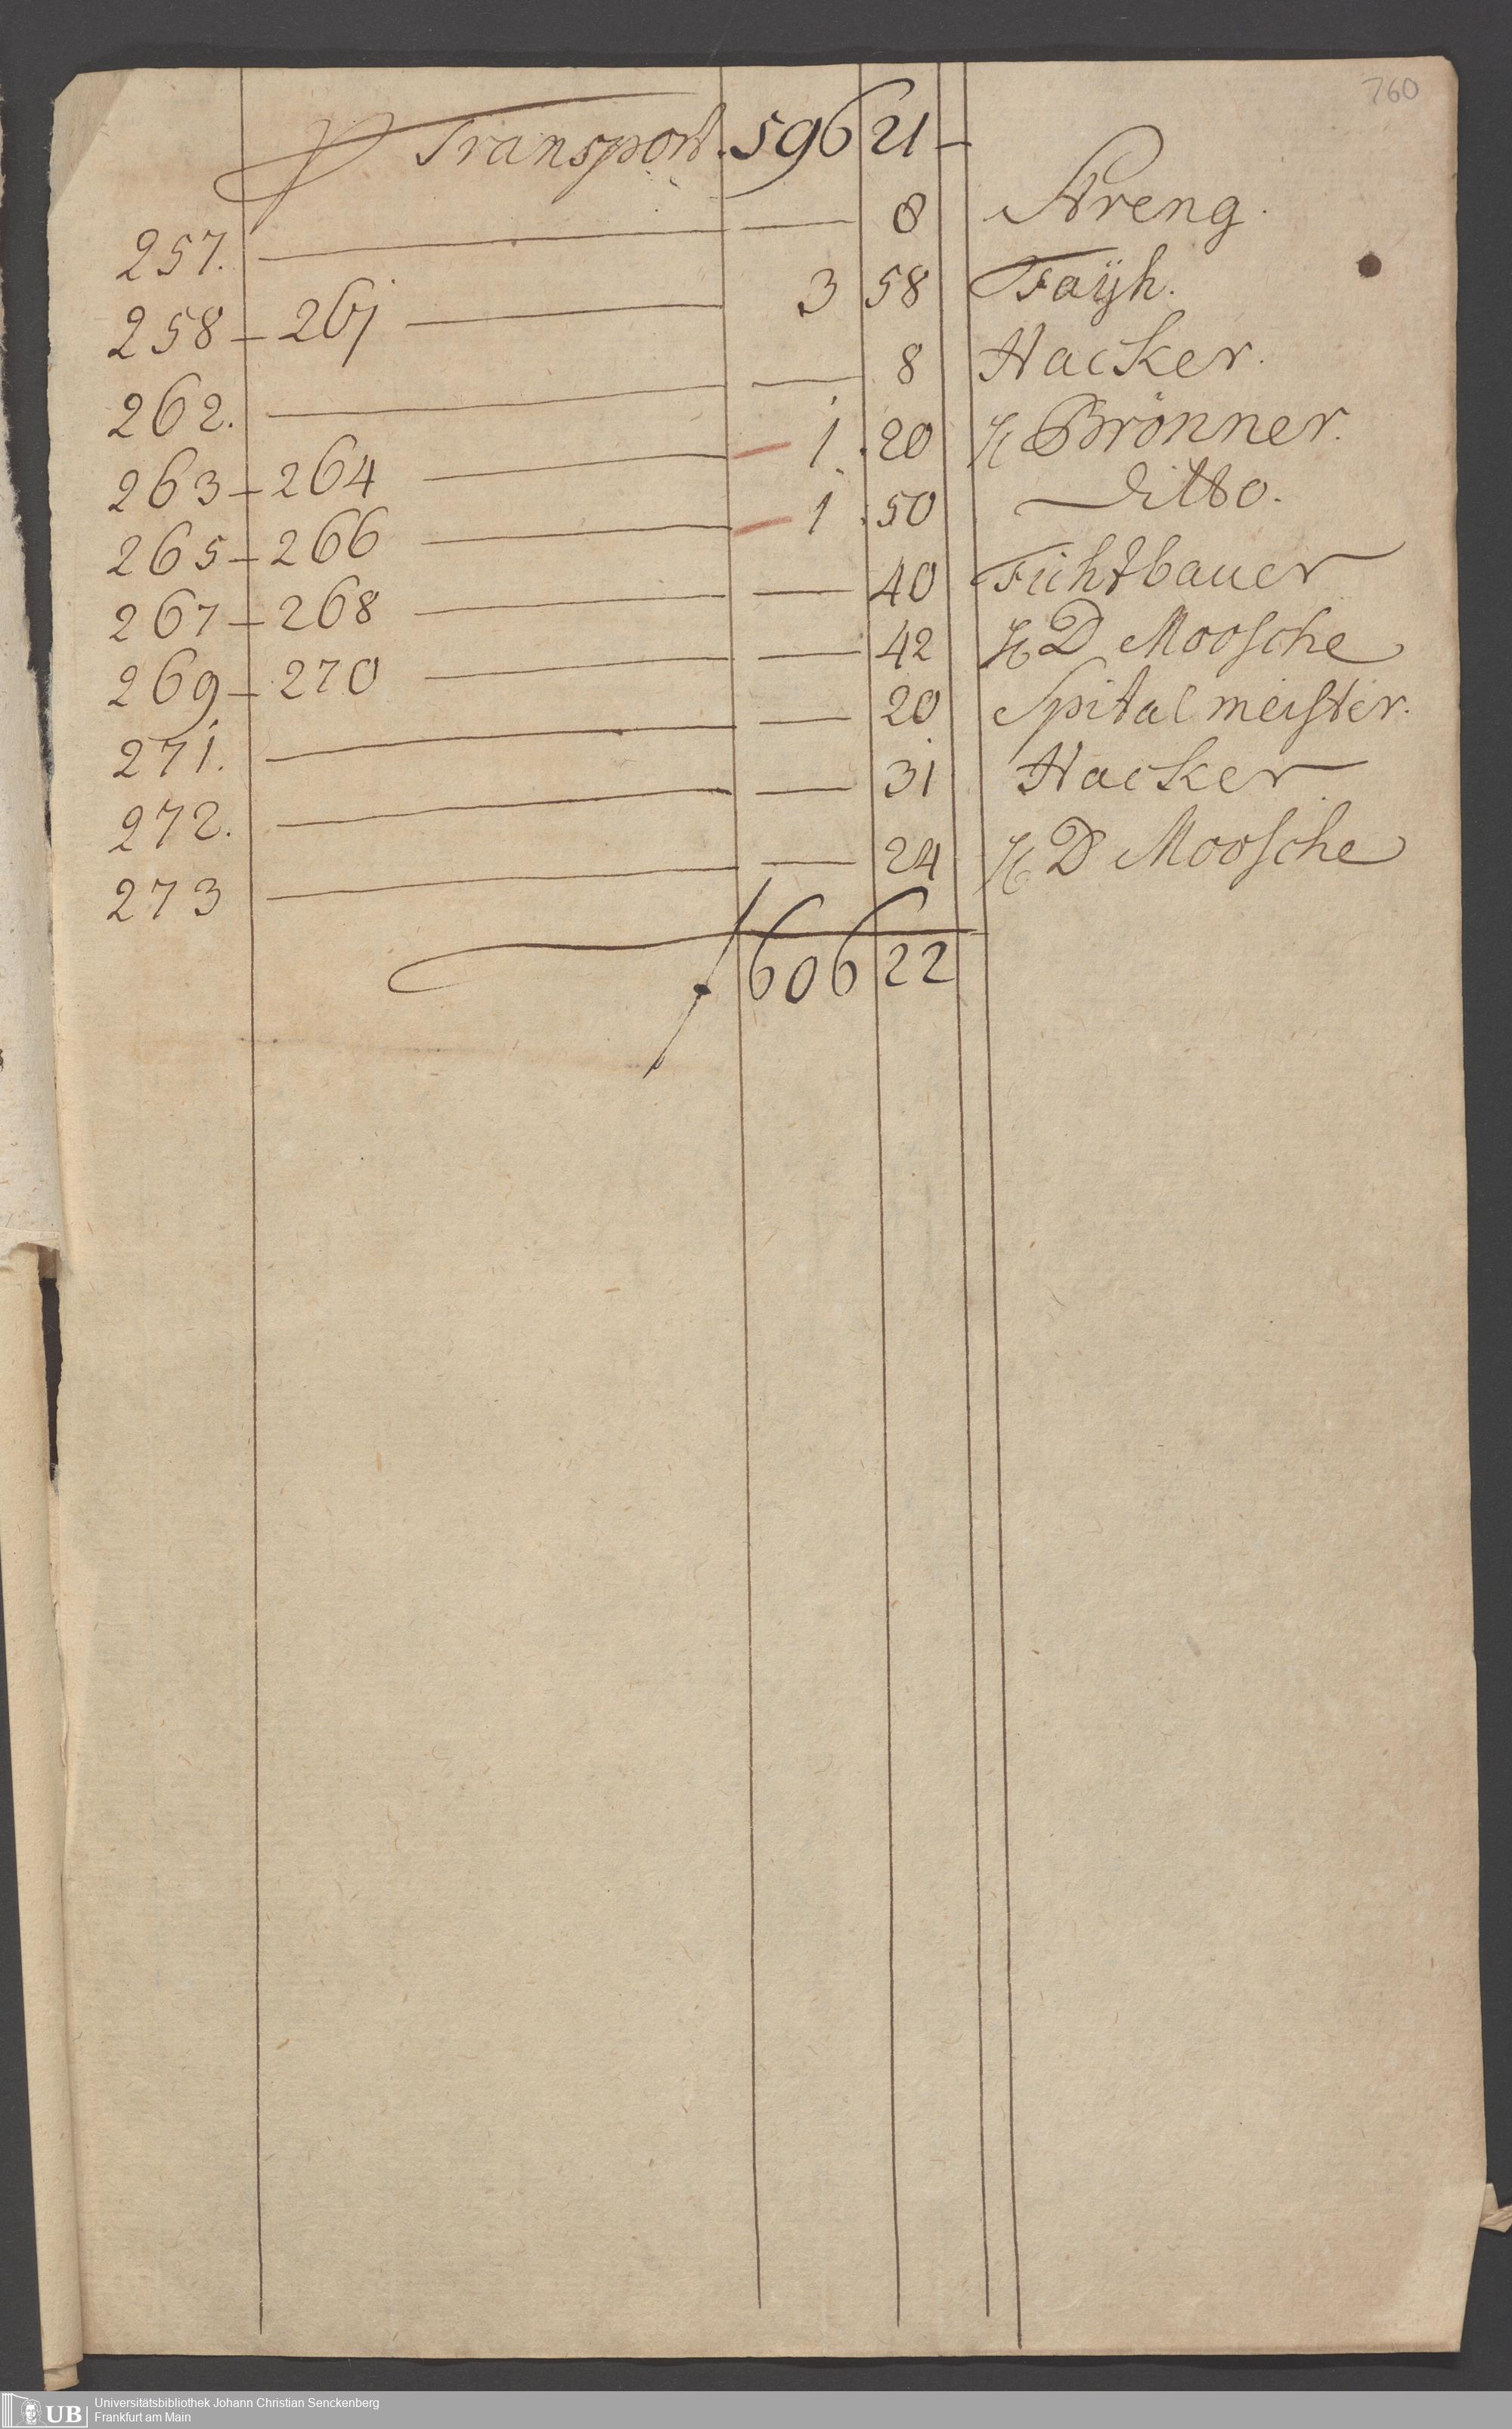 760
Transport. 596 21 –
257. — — 8 Streng.
258 – 261 — 3 58 Faÿh.
262. — — 8 Hacker.
263 – 264 — 1. 20 H Brönner.
265 – 266 — 1. 50 ditto.
267 – 268 — — 40 Fichtbauer
269 – 270 — — 42 H D Moosche
271. — — 20 Spitalmeister.
272. — — 31 Hacker
273 — — 24 H D Moosche
f 606 22
UB Universitätsbibliothek Johann Christian Senckenberg
Frankfurt am Main